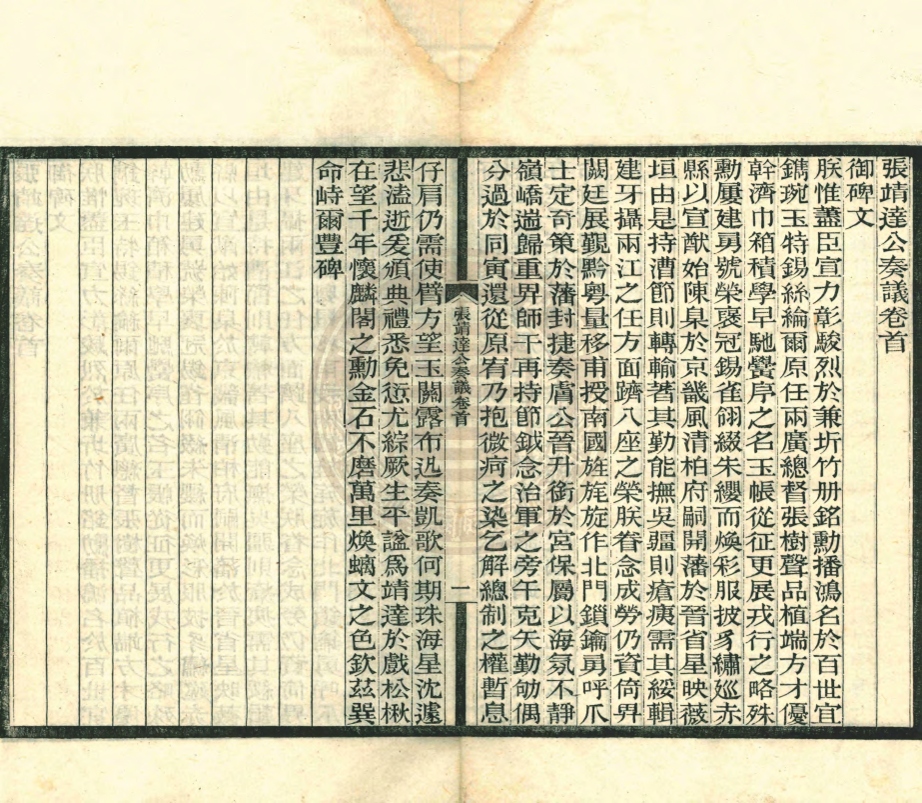 張靖達公奏議卷首
御碑文
朕惟藎臣宣力彰駿烈於兼圻竹册銘勳播鴻名於百世宜
鐫琬玉特錫絲綸爾原任兩廣總督張樹聲品植端方才優
幹濟巾箱積學早馳黌序之名玉帳從征更展戎行之略殊
勳屢建勇號榮襃冠錫雀翎綴朱纓而煥彩服披豸繡巡赤
縣以宣猷始陳臬於京畿風清柏府嗣開藩於晉省星映薇
垣由是持漕節則轉輸著其勤能撫吳疆則瘡痍需其綏輯
建牙攝兩江之任方面躋八座之榮朕眷念成勞仍資倚畀
闕廷展覲黔粵量移甫授南國旌旄旋作北門鎖鑰勇呼爪
士定奇策於藩封捷奏膚公晉升銜於宮保屬以海氛不靜
嶺嶠遄歸重畀師干再持節鉞念治軍之旁午克矢勤劬偶
分過於同寅還從原宥乃抱微疴之染乞解總制之權暫息
張靖達公奏議卷首
一
仔肩仍需使臂方望玉關露布迅奏凱歌何期珠海星沈遽
悲溘逝爰頒典禮悉免愆尤綜厥生平諡爲靖達於戲松楸
在望千年懷麟閣之勳金石不磨萬里煥螭文之色欽茲巽
命峙爾豐碑